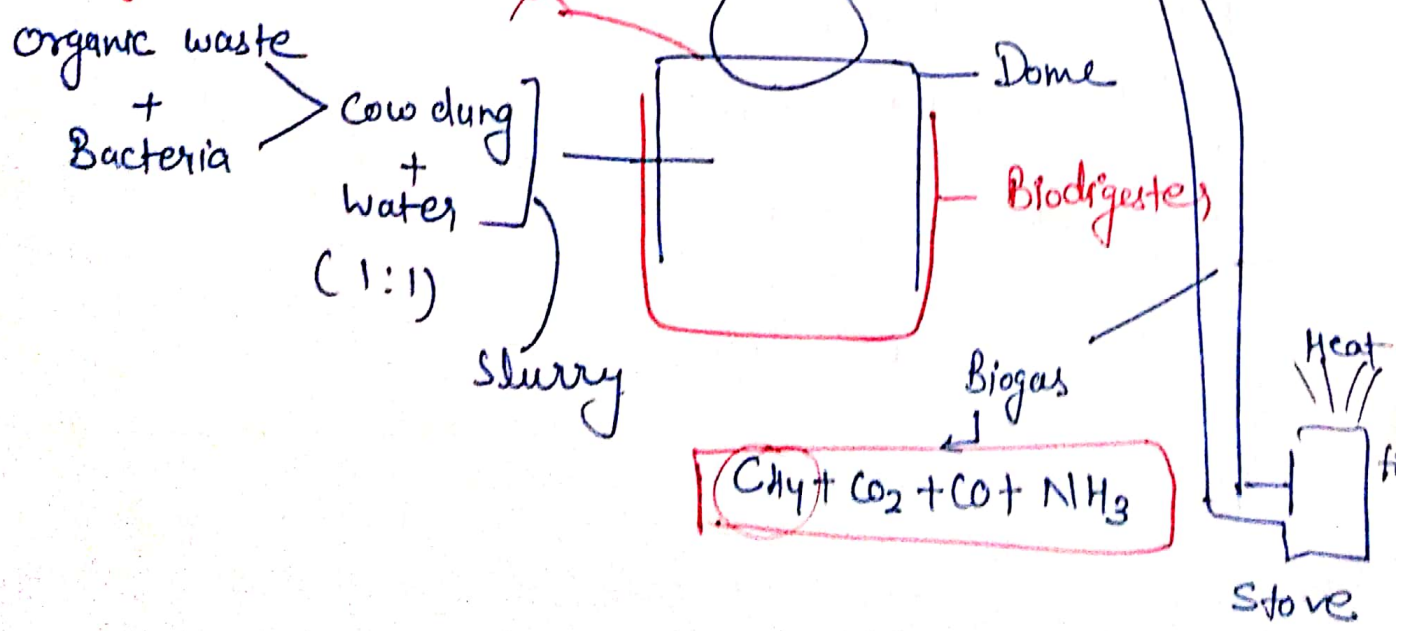 Organic waste
+
Bacteria
Cow dung
+
Water
(1:1)
Slurry
Dome
Biodigester
Biogas
CH4 + CO2 + CO + NH3
Heat
Stove